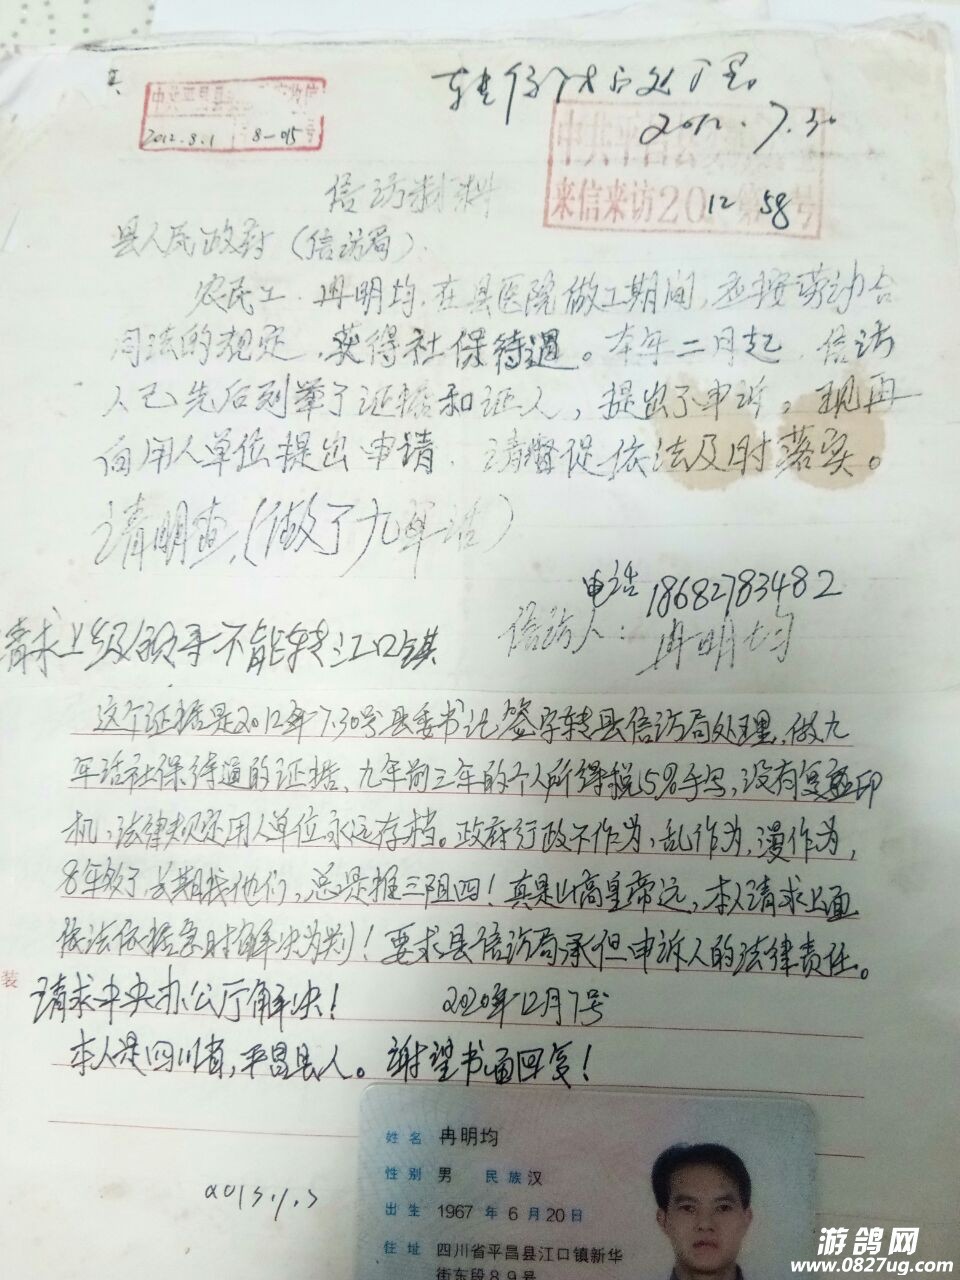 转信访局处理。
2012.7.30
中共平昌县
2012.8.1 8-015号
来信来访2012第58号
信访材料
县人民政府（信访局）.
农民工.冉明均.在县医院做工期间,应按劳动合
同法的规定,获得社保待遇。本年二月起.信访
人已先后列举了证据和证人,提出了申诉,现再
向用人单位提出申请.请督促依法及时落实。
请明查.(做了九年活)
电话18682783482
信访人:冉明均
请求上级领导不能转江口镇
这个证据是2012年7.30号县委书记签字转县信访局处理,做九
年活社保待遇的证据,九年前三年的个人所得税5%手写,没有复印
机,法律规定用人单位永远存档。政府行政不作为,乱作为,漫作为,
8年致了长期找他们,总是推三阻四!真是山高皇帝远,本人请求上面
依法依据急时解决为判!要求县信访局承但申诉人的法律责任。
装
请求中央办公厅解决! 2020年12月7号
本人是四川省,平昌县人。谢望书面回复!
2013.1.3
姓名 冉明均
性别 男 民族 汉
出生 1967 年 6 月 20 日
住址 四川省平昌县江口镇新华
街东段89号
游鸽网
www.0827ug.com